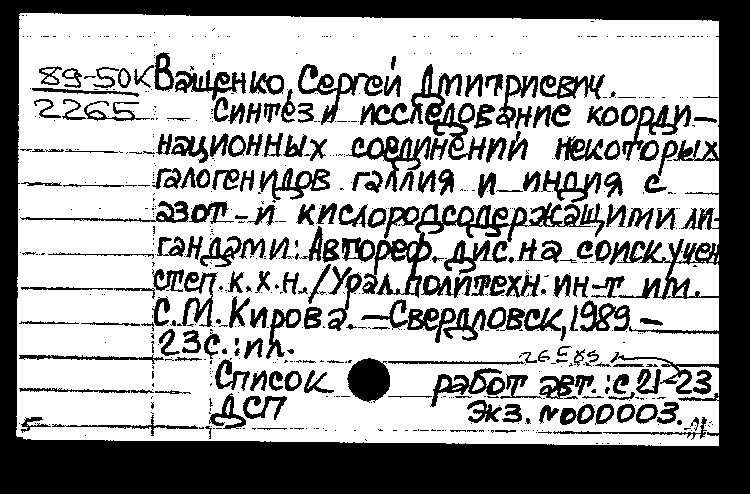 89-50К Ващенко, Сергей Дмитриевич.
2265 Синтез и исследование коорди-
национных соединений некоторых
галогенидов галлия и индия с
азот- и кислородсодержащими ли-
гандами: Автореф. дис. на соиск. учен
степ. к.х.н. / Урал. политехн. ин-т им.
С.М. Кирова. — Свердловск, 1989. —
23с.: ил.
Список работ авт.: с. 21-23.
ДСП Экз. №000003.
5